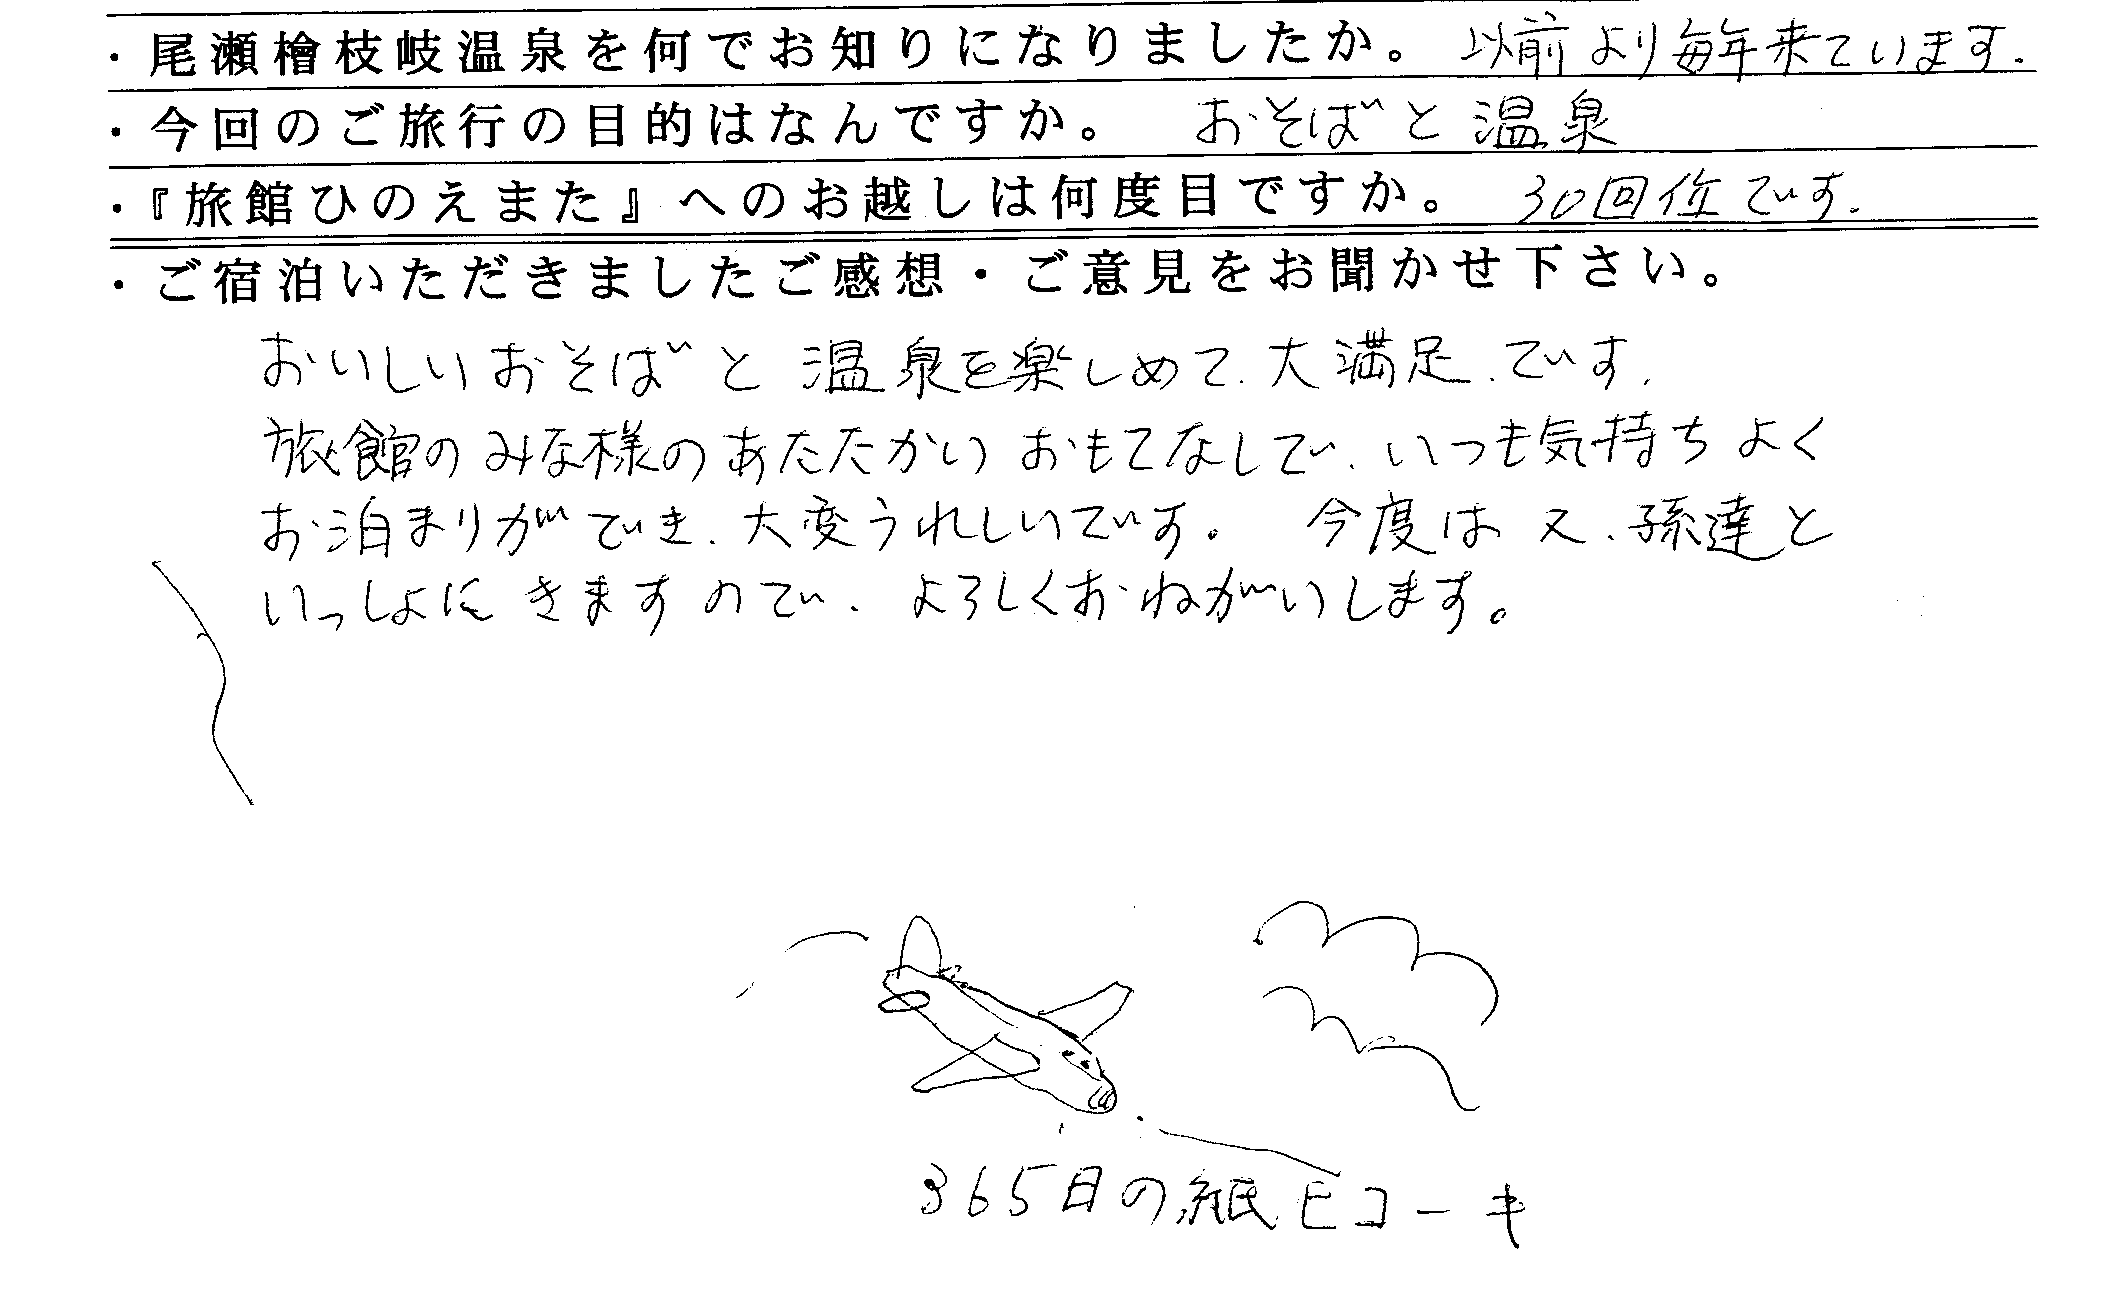 ・尾瀬檜枝岐温泉を何でお知りになりましたか。 以前より毎年来ています.
・今回のご旅行の目的はなんですか。 おそばと温泉
・『旅館ひのえまた』へのお越しは何度目ですか。 30回位です.
・ご宿泊いただきましたご感想・ご意見をお聞かせ下さい。
おいしいおそばと温泉を楽しめて、大満足、です.
旅館のみな様のあたたかいおもてなしで、いつも気持ちよく
お泊まりができ、大変うれしいです。 今度は又、孫達と
いっしょにきますので、よろしくおねがいします。
365日の紙ヒコーキ